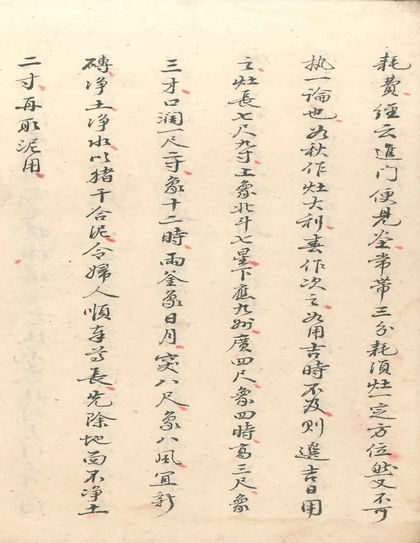 耗費經云進门便見釜常帶三分耗項灶一定方位然又不可
执一論也为秋作灶大利春作次之为用吉時不及則選吉日用
之灶長七尺九寸上象北斗七星下應九州廣四尺象四時高三尺象
三才口濶一尺二寸象十二時兩釜象日月突八尺象八風宜新
磚净土净水以猪干合泥令婦人順奉尊長先除地面不净土
二寸再取泥用